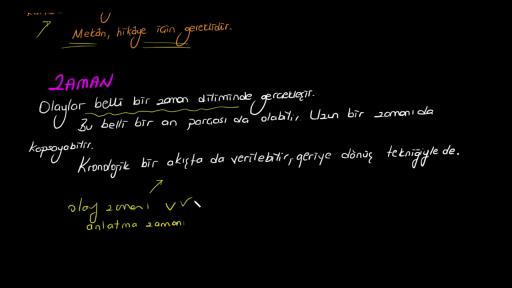 Mekân, hikâye için gereklidir.
ZAMAN
Olaylar belli bir zaman diliminde gerçekleşir.
Bu belli bir an parçası da olabilir, Uzun bir zamanı da
kapsayabilir.
Kronolojik bir akışta da verilebilir, geriye dönüş tekniğiyle de.
olay zamanı
anlatma zamanı